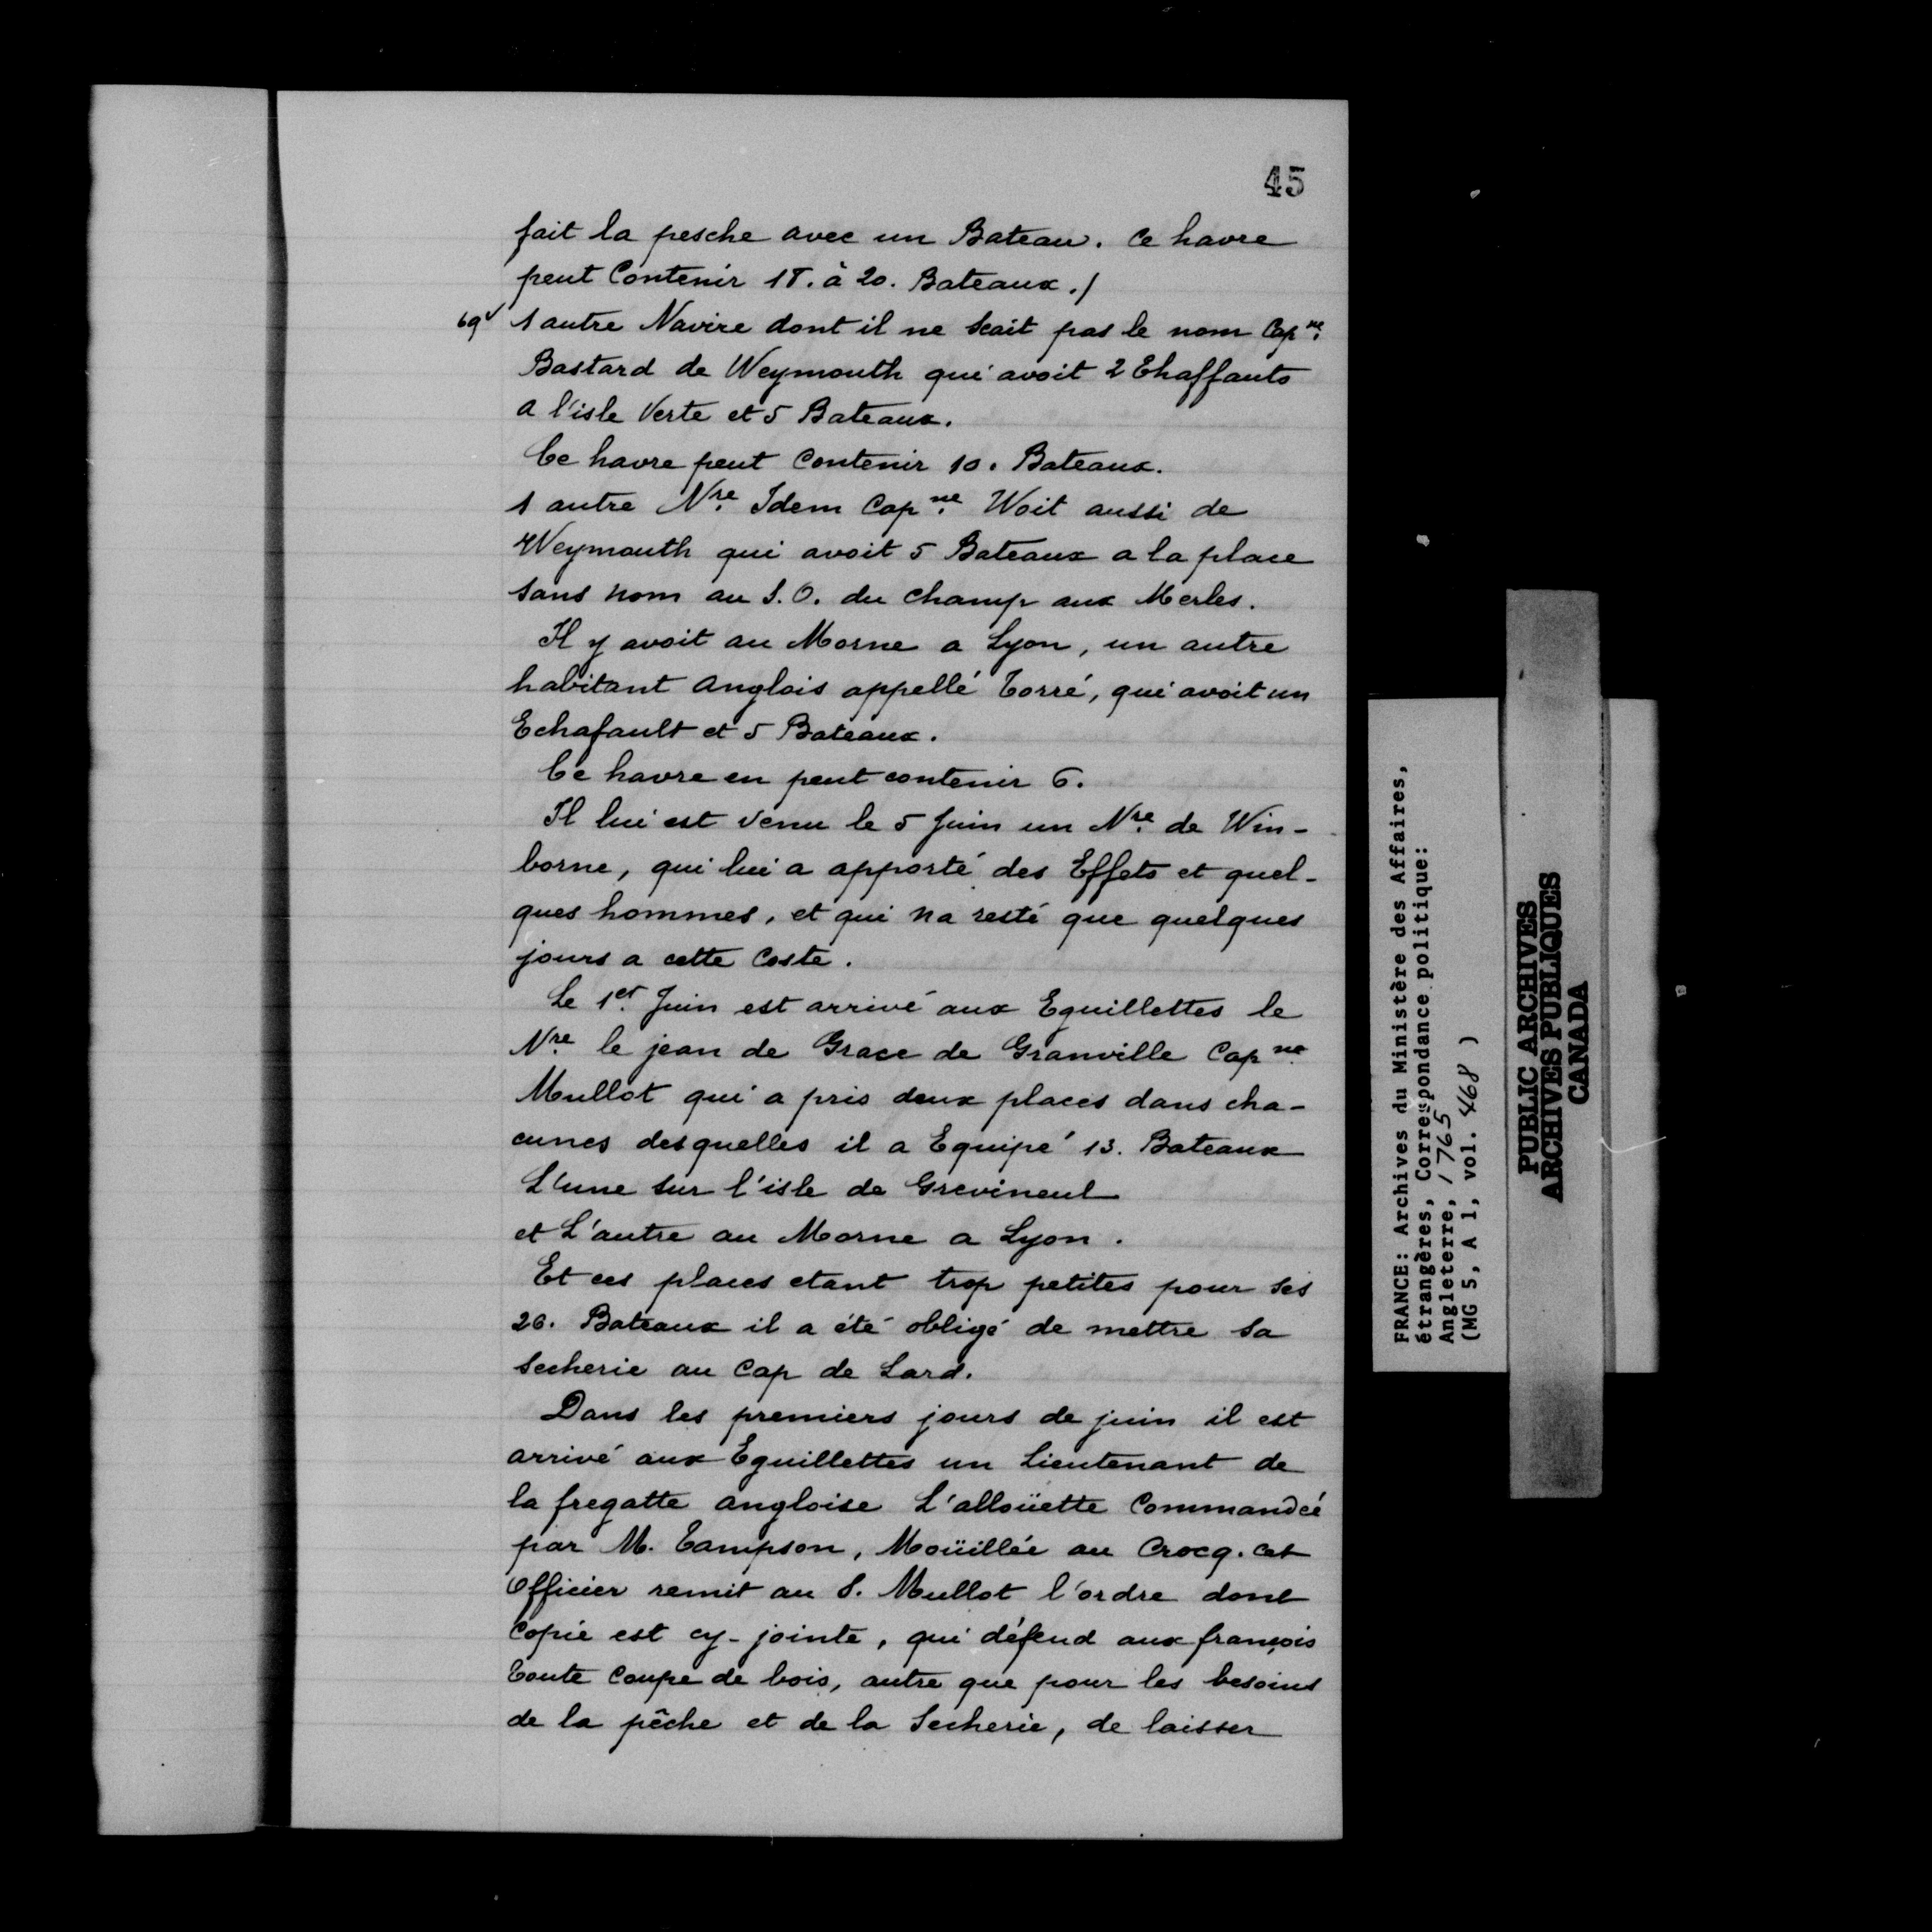 45
fait la pesche avec un Bateau. Ce havre
peut Contenir 18. à 20. Bateaux./
69v 1 autre Navire dont il ne scait pas le nom Capne.
Bastard de Weymouth qui avoit 2 Ehaffauts
a l'isle Verte et 5 Bateaux.
Ce havre peut Contenir 10. Bateaux.
1 autre Nre. Idem Capne. Woit aussi de
Weymouth qui avoit 5 Bateaux a la place
sans nom au S.O. du champ aux Merles.
Il y avoit au Morne a Lyon, un autre
habitant anglois appellé Torré, qui avoit un
Echafault et 5 Bateaux.
Ce havre en peut contenir 6.
Il lui est venu le 5 Juin un Nre. de Win-
borne, qui lui a apporté des Effets et quel-
ques hommes, et qui na resté que quelques
jours a cette Coste.
Le 1er. Juin est arrivé aux Eguillettes le
Nre. le jean de Grace de Granville Capne.
Mullot qui a pris deux places dans cha-
cunes desquelles il a Equipé 13. Bateaux
L'une sur l'isle de Grevineul
et L'autre au Morne a Lyon.
Et ces places etant trop petites pour ses
26. Bateaux il a été obligé de mettre sa
secherie au Cap de Lard.
Dans les premiers jours de juin il est
arrivé aux Eguillettes un Lieutenant de
la fregatte angloise L'alloüette Commandée
par M. Tampson, Moüillée au Crocq. Cet
Officier remit au S. Mullot l'ordre dont
Copie est cy-jointe, qui défend aux françois
Toute Coupe de bois, autre que pour les besoins
de la pêche et de la Secherie, de laisser
FRANCE: Archives du Ministère des Affaires,
étrangères, Correspondance politique:
Angleterre, 1765
(MG 5, A 1, vol. 468 )
PUBLIC ARCHIVES
ARCHIVES PUBLIQUES
CANADA